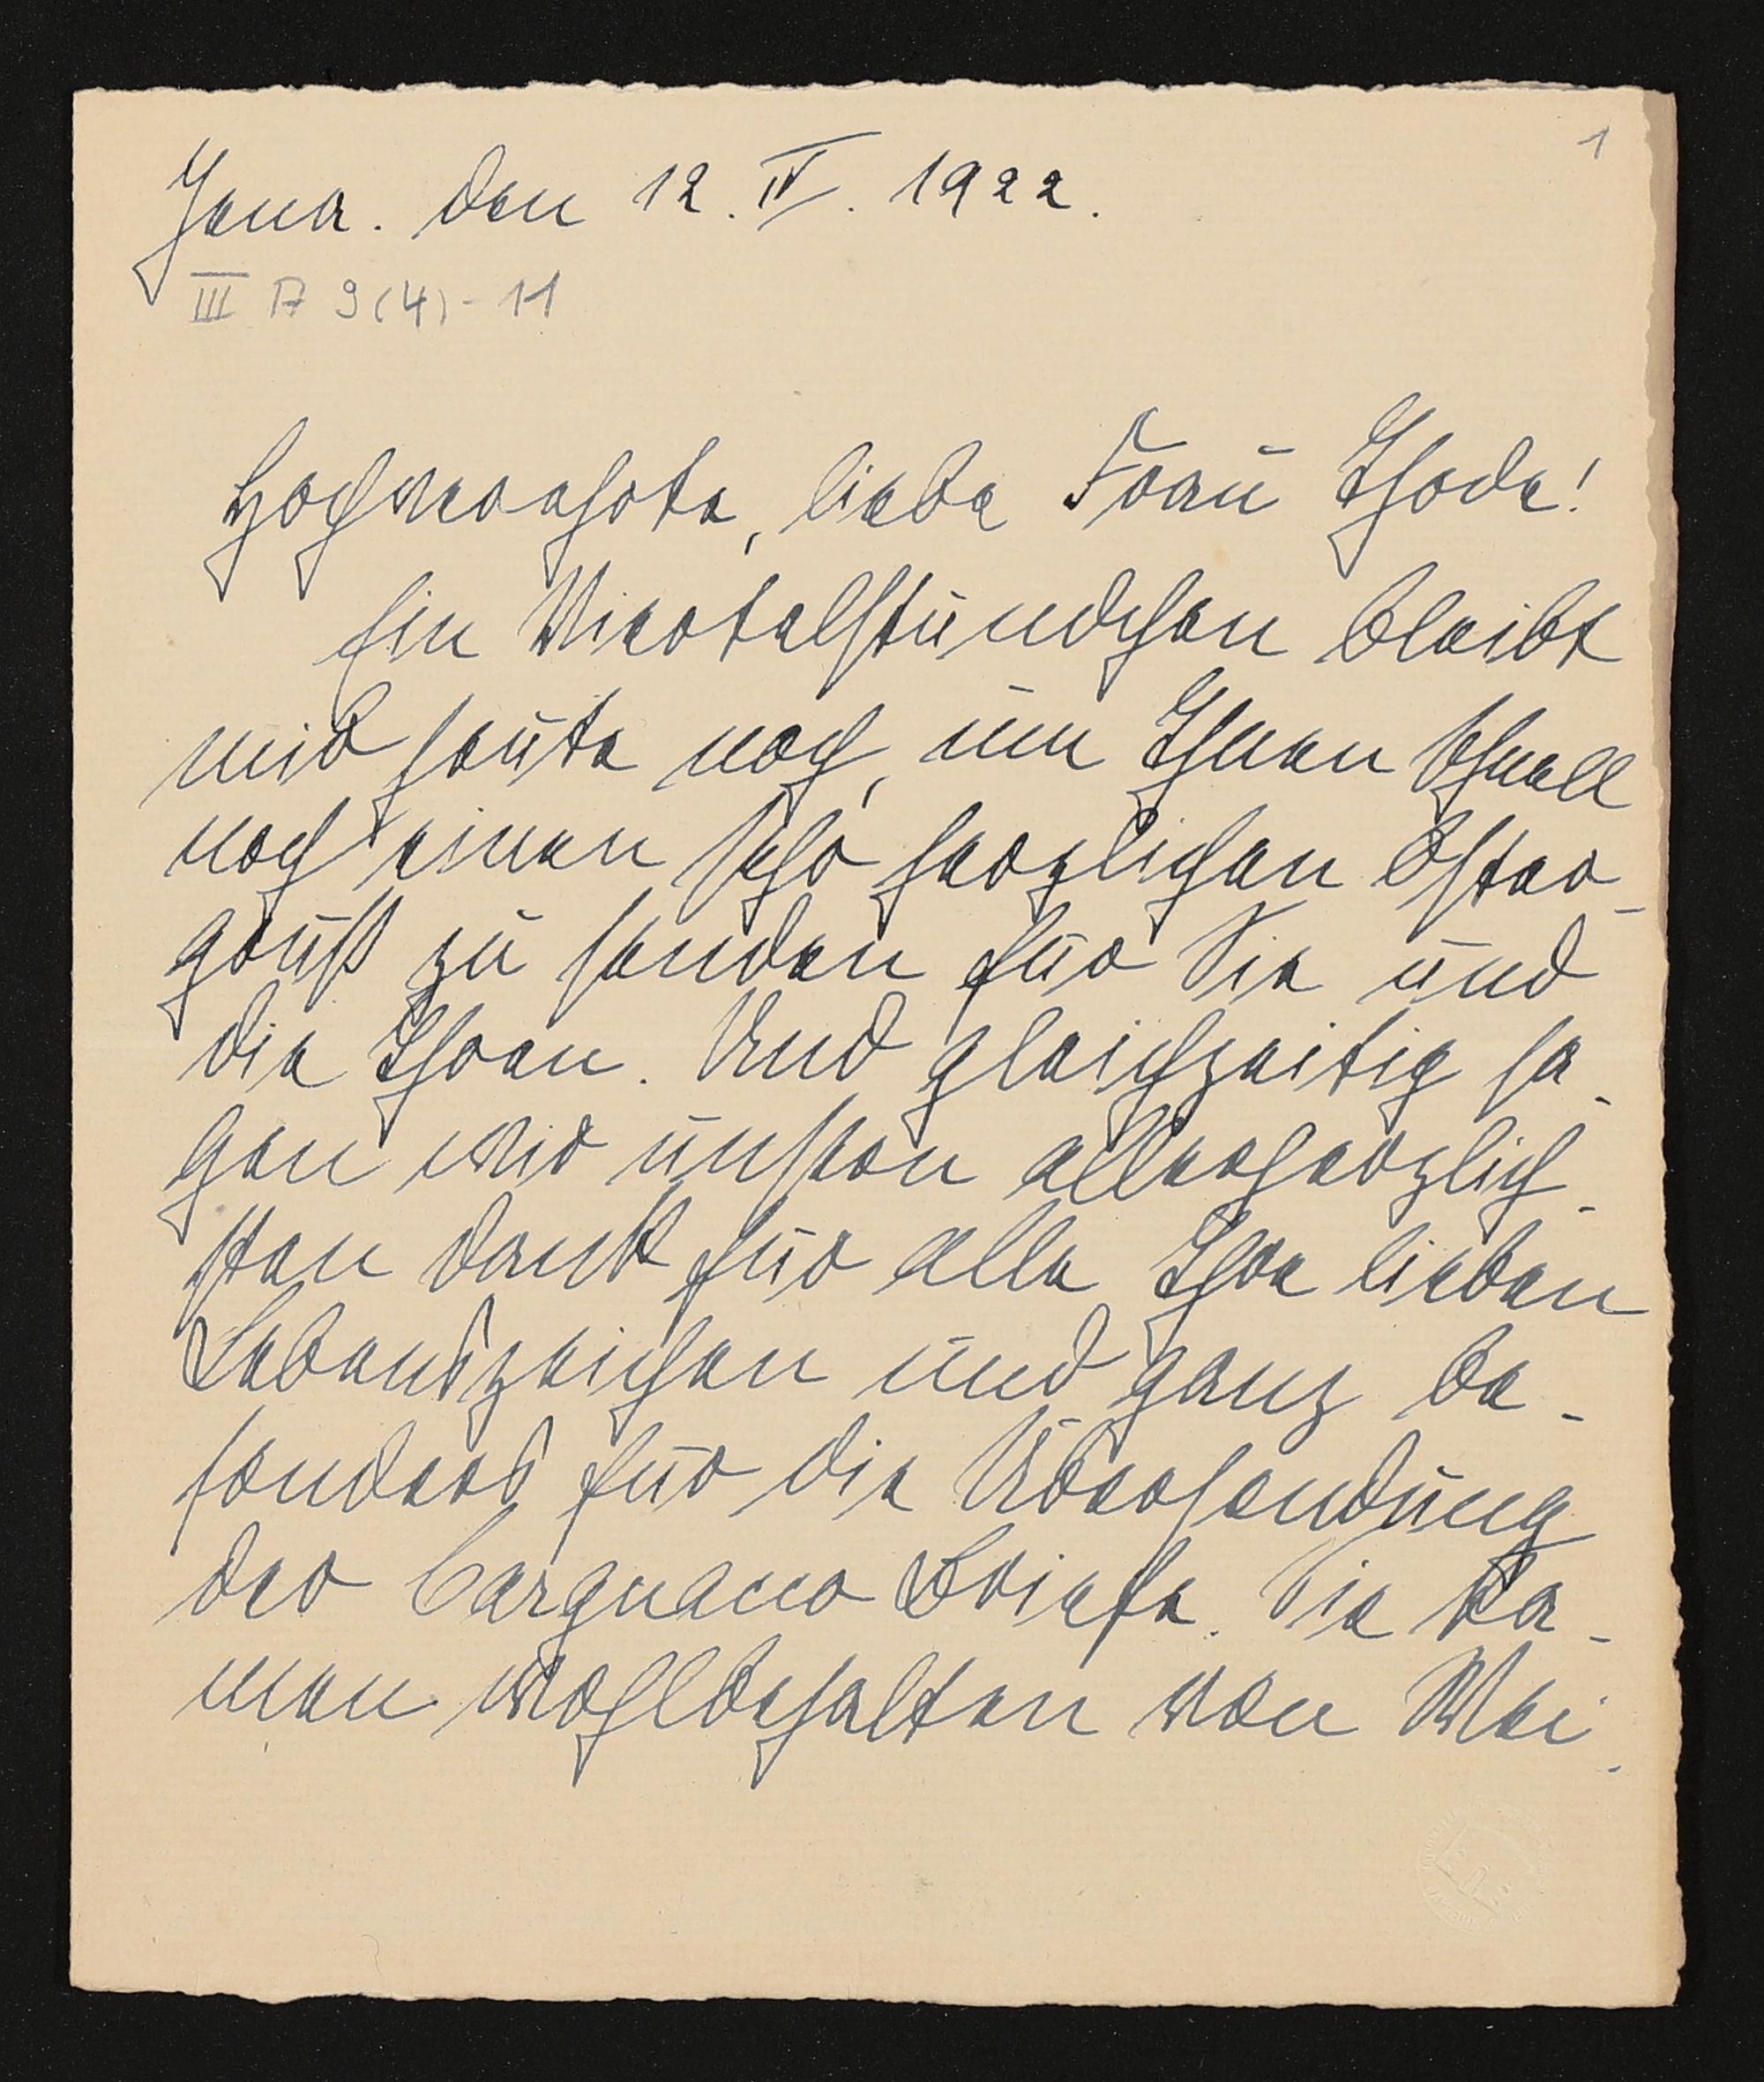 1
Jena. den 12. IV. 1922.
III A 9(4)-11
Hochverehrte, liebe Frau Thode!
Ein Viertelstündchen bleibt
mir heute noch, um Ihnen schnell
noch einen sehr herzlichen Oster-
gruß zu senden für Sie und
die Ihren. Und gleichzeitig sa-
gen wir unsern allerherzlich-
sten Dank für alle Ihre lieben
Lebenszeichen und ganz be-
sonders für die Übersendung
der Cargnacco Briefe. Sie ka-
men wohlbehalten von Mei-